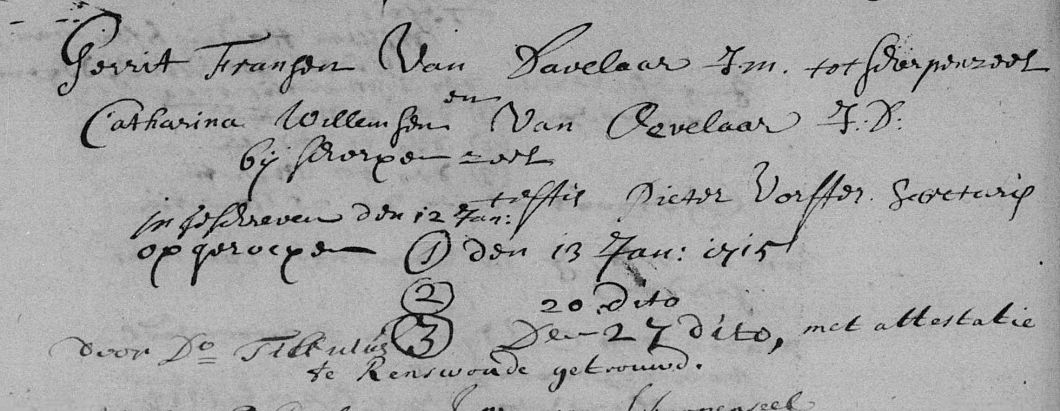 Gerrit Fransen Van Davelaar J:m. tot scherpenzeel
en
Catharina Willemsen Van Oevelaar J:D:
bij scherpenzeel
testis Pieter Vorster. Secretaris
ingeschreven den 12 Jan:
opgeroepen ① den 13 Jan: 1715
② 20 dito
③ Den 27 dito, met attestatie
door Do
te Renswoude getrouwd.